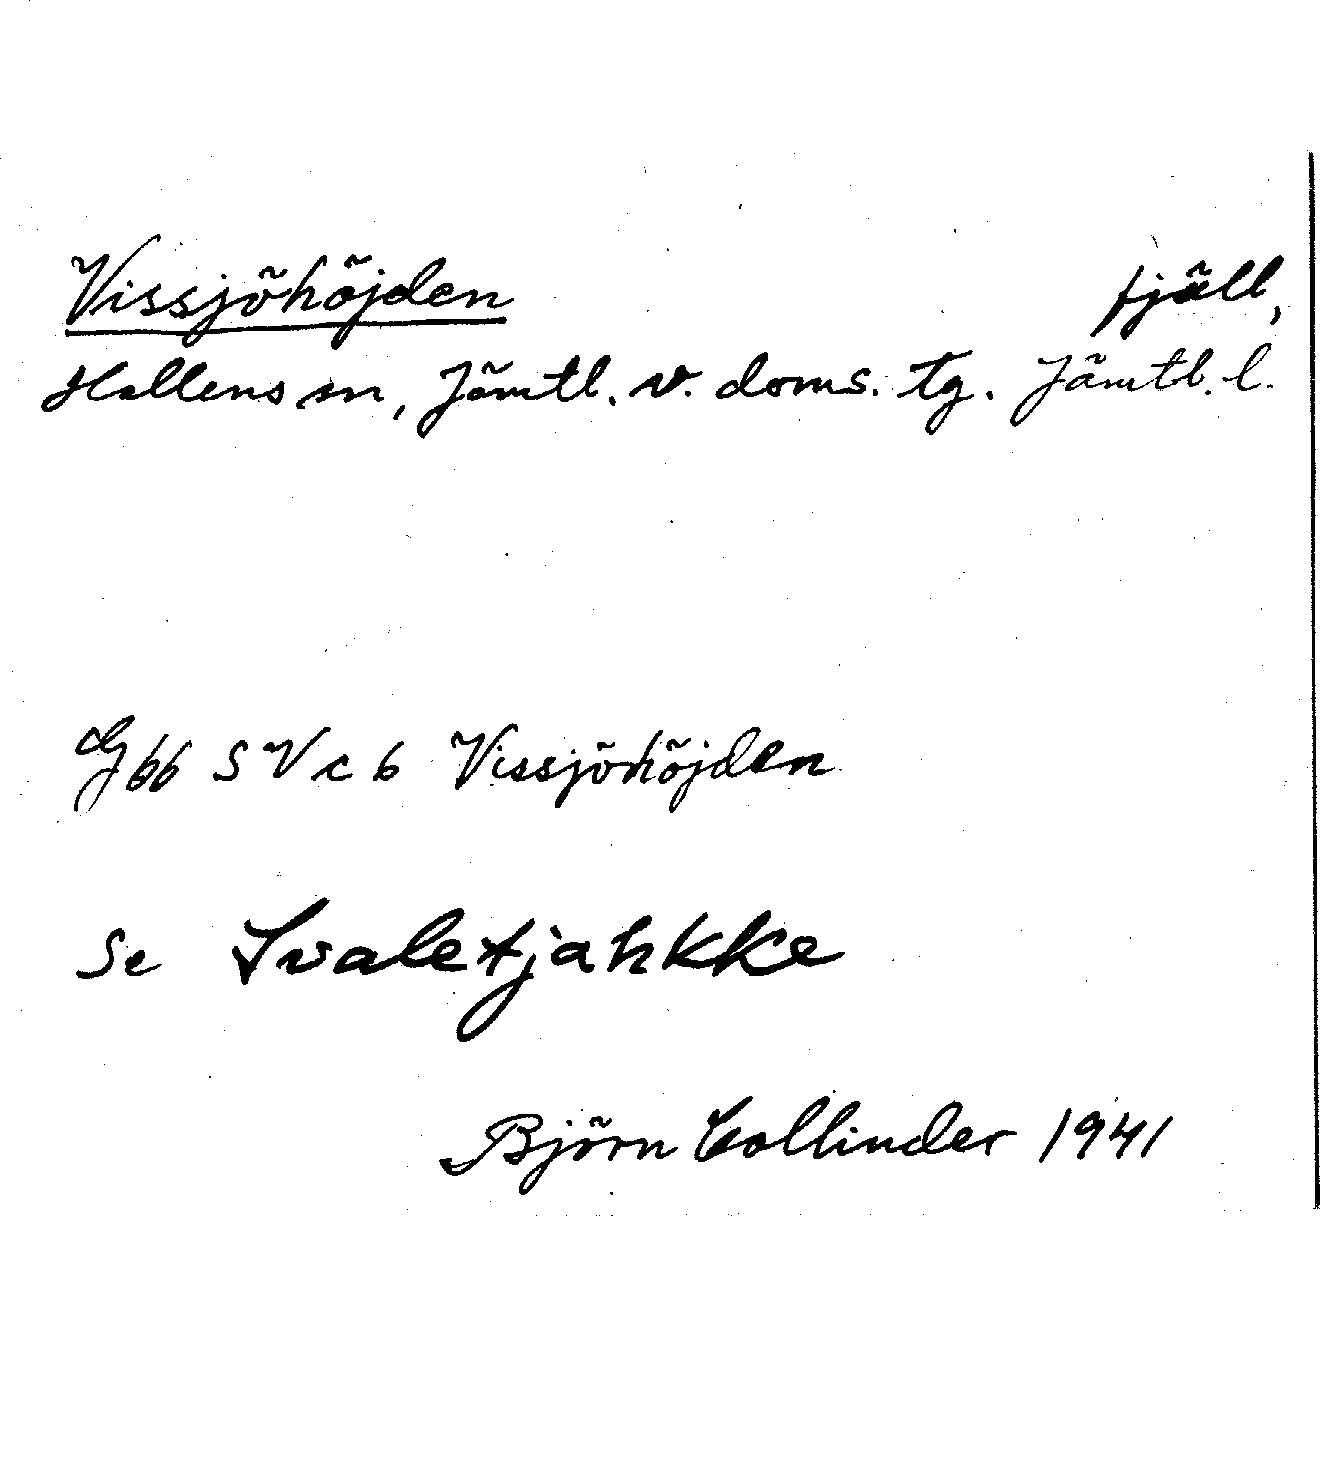 Vissjöhöjden fjäll,
Hallens sn, Jämtl. v. doms. tg. Jämtl. l.
G 66 SV c 6 Vissjöhöjden
Se Svaletjahkke
Björn Collinder 1941